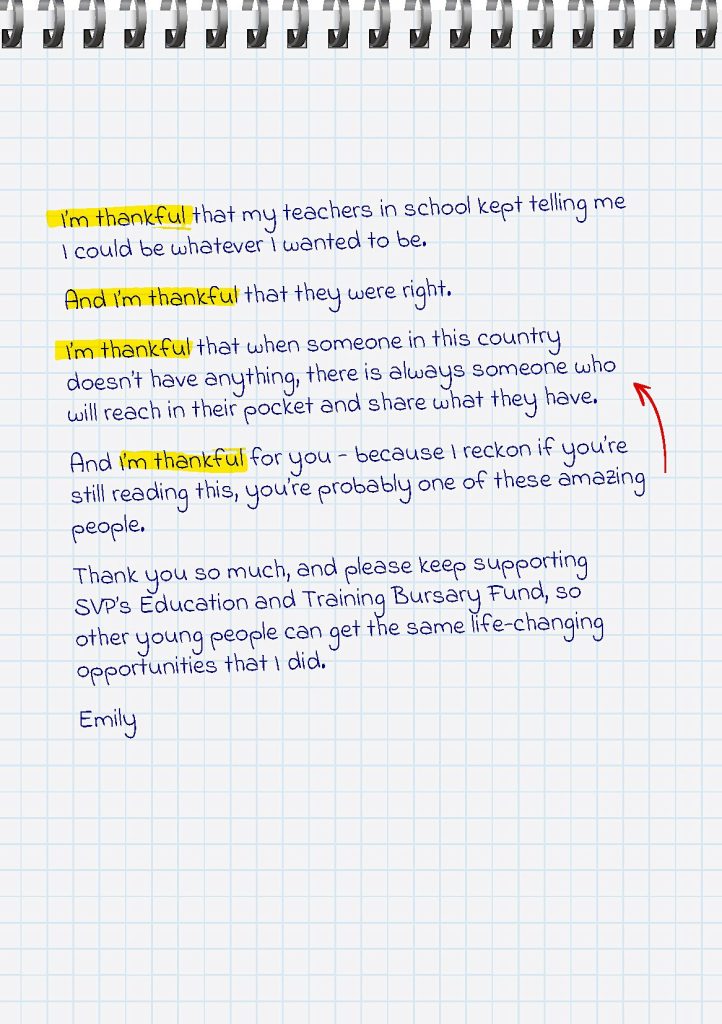 I'm thankful that my teachers in school kept telling me
I could be whatever I wanted to be.
And I'm thankful that they were right.
I'm thankful that when someone in this country
doesn't have anything, there is always someone who
will reach in their pocket and share what they have.
And I'm thankful for you - because I reckon if you're
still reading this, you're probably one of these amazing
people.
Thank you so much, and please keep supporting
SVP's Education and Training Bursary Fund, so
other young people can get the same life-changing
opportunities that I did.
Emily